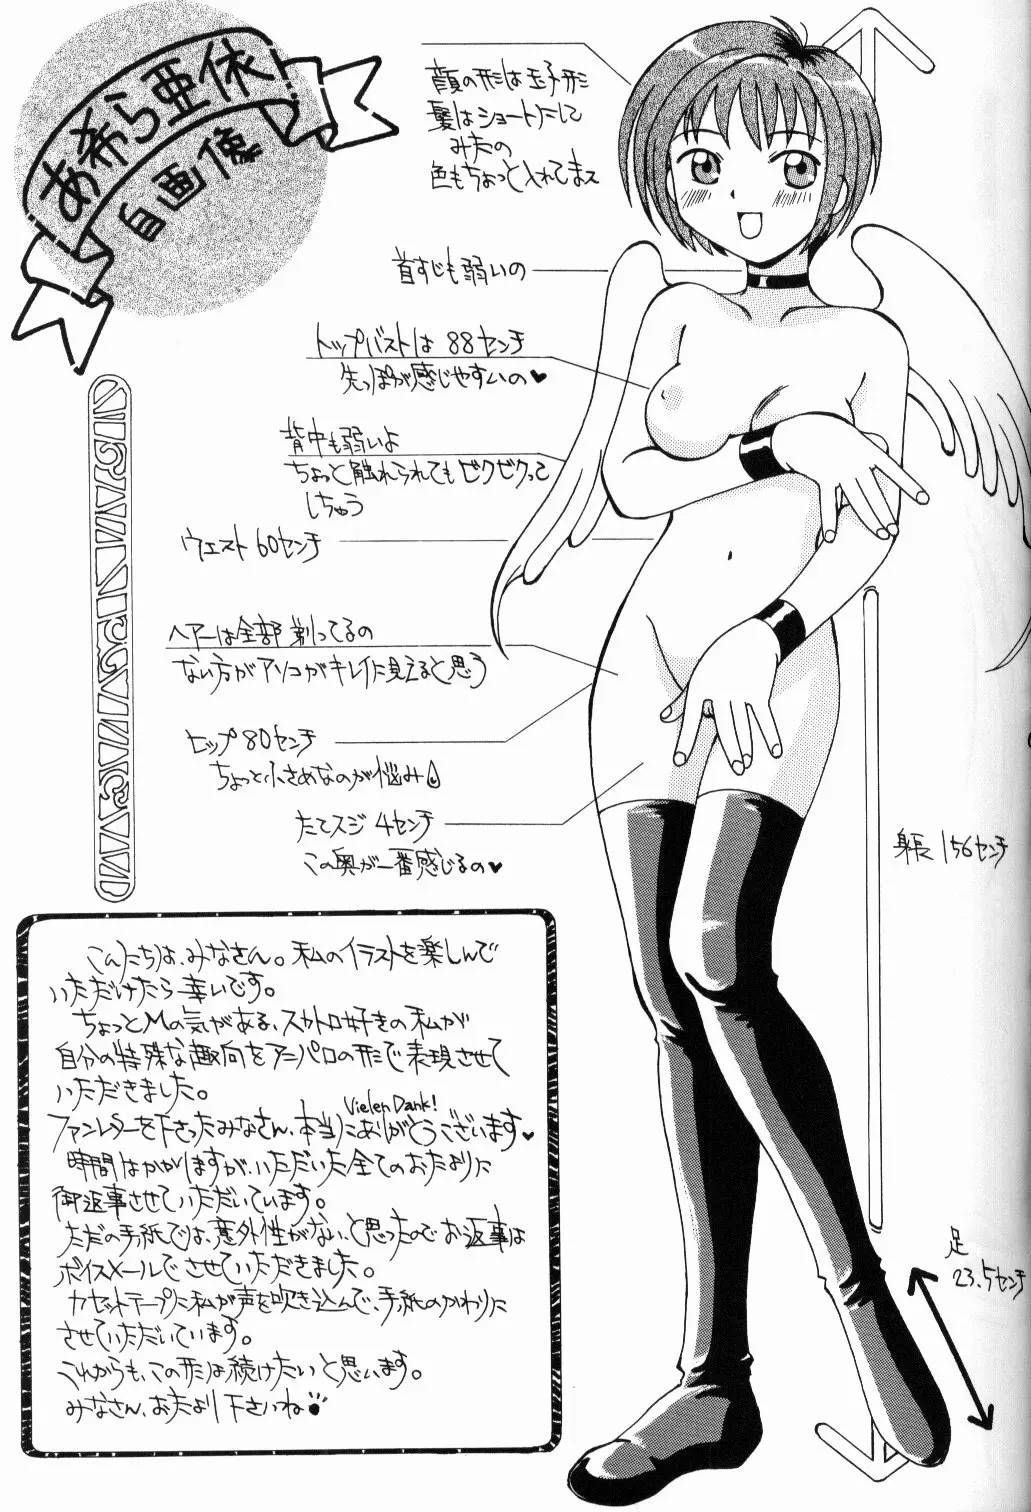 あ希ら亜依
自画像
顔の形は玉子形
髪はショートにして
みたの
色もちょっと入れてまス
首すじも弱いの
トップバストは 88センチ
先っぽが感じやすいの♥
背中も弱いよ
ちょっと触れられてもビクビクって
しちゃう
ウエスト 60センチ
ヘアーは全部 剃ってるの
ない方がアソコがキレイに見えると思う
ヒップ 80センチ
ちょっと小さめなのが悩み
たてスジ 4センチ
この奥が一番感じるの♥
身長 156センチ
足
23.5センチ
こんにちは、みなさん。私のイラストを楽しんで
いただけたら幸いです。
ちょっとMの気がある、スカトロ好きの私が
自分の特殊な趣向をアニパロの形で表現させて
いただきました。
Vielen Dank!
ファンレターを下さったみなさん、本当にありがとうございます♥
時間はかかりますが、いただいた全てのおたよりに
御返事させていただいています。
ただの手紙では、意外性がない、と思ったのでお返事は
ボイスメールでさせていただきました。
カセットテープに私が声を吹き込んで、手紙のかわりに
させていただいています。
これからも、この形は続けたいと思います。
みなさん、おたより下さいね